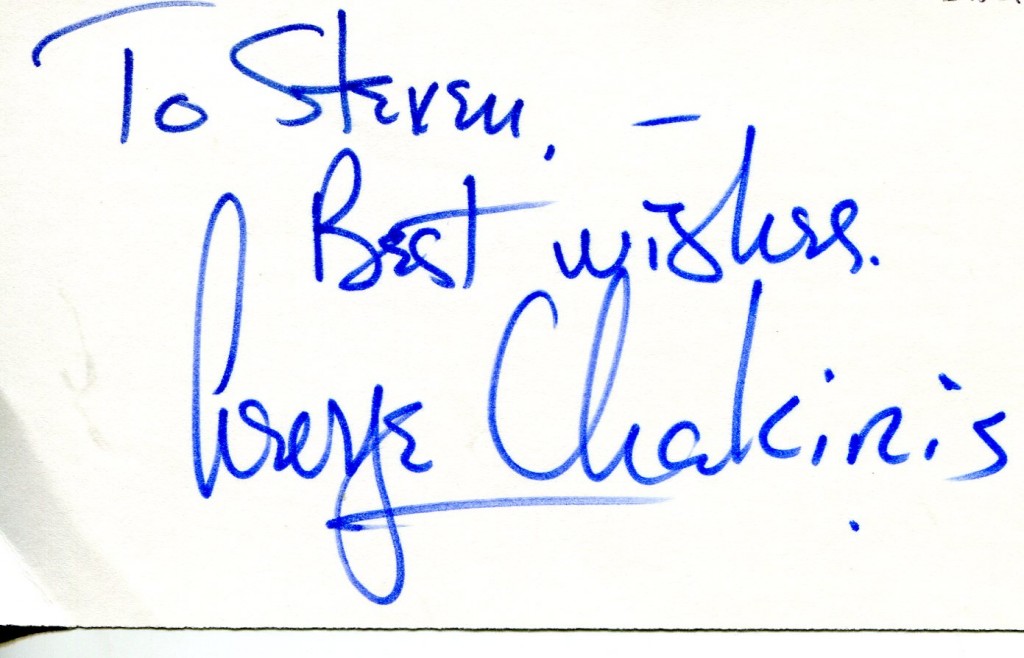 To Steven, –
Best wishes.
George Chakiris